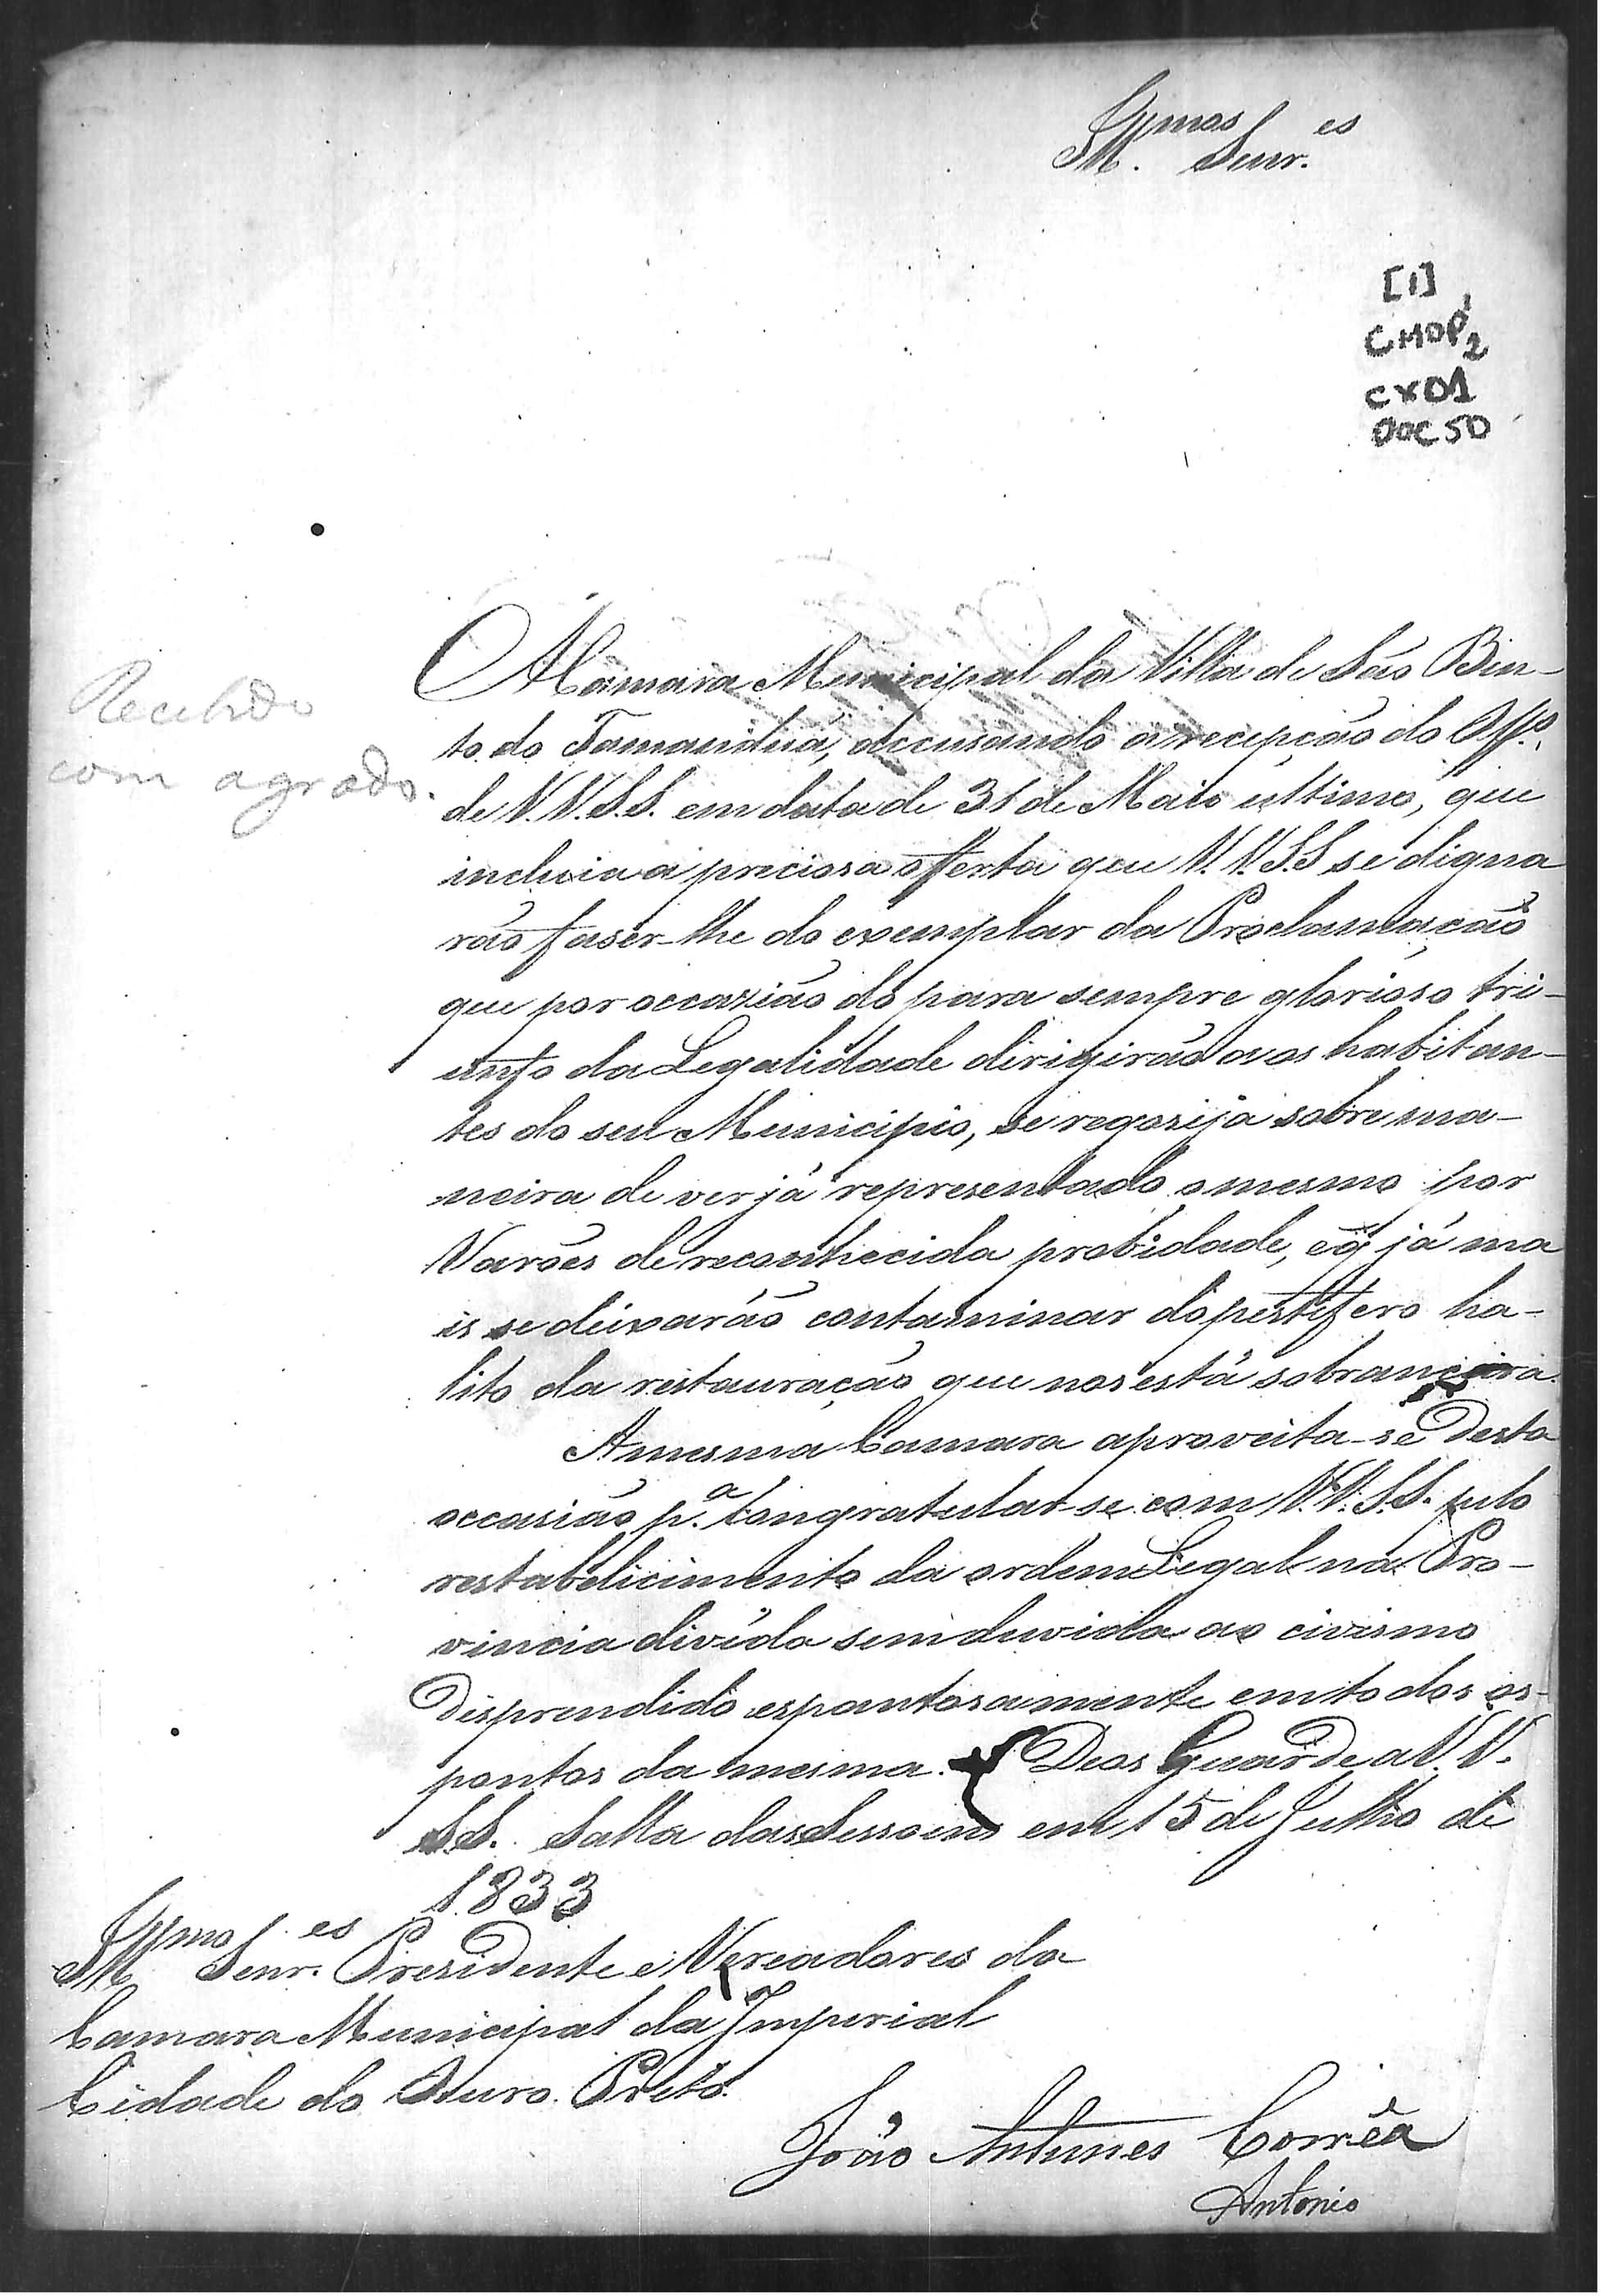 Illmos Senr.es
[1]
CMOP
2
CX01
DOC 50
A Camara Municipal da Villa de São Ben-
to do Tamanduá, accusando a recepção do Off.º,
de V.V.S.S. em data de 31 de Maio ultimo, que
incluia a preciosa offerta que V.V.S.S se digna
rão faser-lhe do exemplar da Proclamação
que por occazião do para sempre glorioso tri-
unfo da Legalidade dirigirão aos habitan-
tes do seu Municipio, se regosija sobre ma-
neira de ver já representado o mesmo por
Varões de reconhecida probidade, e q̃ já ma
is se deixarão contaminar do pestifero ha-
lito da restauração que nos está sobranceira.
A mesma Camara aproveita-se desta
occasião p.a Congratular-se com V.V.S.S. pelo
restabelicimento da ordem Legal na Pro-
vincia divída sem duvida ao civismo
Disprendido espantosamente em todos os
pontos da mesma. Deos Guarde a V.V.
S.S. Salla das Sessoens em 15 de Julho de
1833
Recebido
com agrado.
Illmos Senr.es Presidente e Vereadores da
Camara Municipal da Imperial
Cidade do Ouro Preto.
João Antunes Corrêa
Antonio